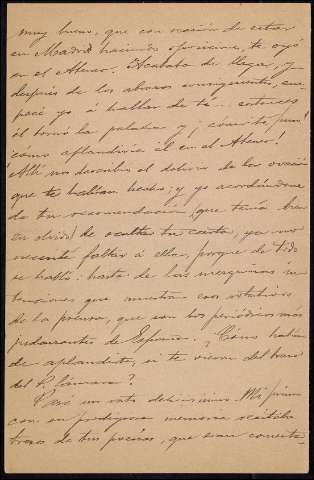 muy bueno, que con ocasión de estar
en Madrid haciendo oposiciones, te oyó
en el Ateneo. Acababa de llegar, y
después de los abrazos consiguientes, em-
pecé yo á hablar de tí... entonces
él tomó la palabra y ¡cómo te puso!
cómo aplaudiría él en el Ateneo!
Allí nos describió el delirio de las ovacio
que te habían hecho; y yo acordándome
de tu recomendación (que tenía ya
en olvido) de ocultar tu carta, ya no
necesité faltar á ella, porque de todo
se habló: hasta de las mezquinas in-
tenciones que muestran esos rotativos
de la prensa, que son los periódicos más
pedantes de España. ¿Cómo habían
de aplaudirte, si te vieron del brazo
del P. Cámara?
Pasé un rato deliciosísimo. Mi primo
con su prodigiosa memoria recitaba
trozos de tus poesías, que eran comenta-